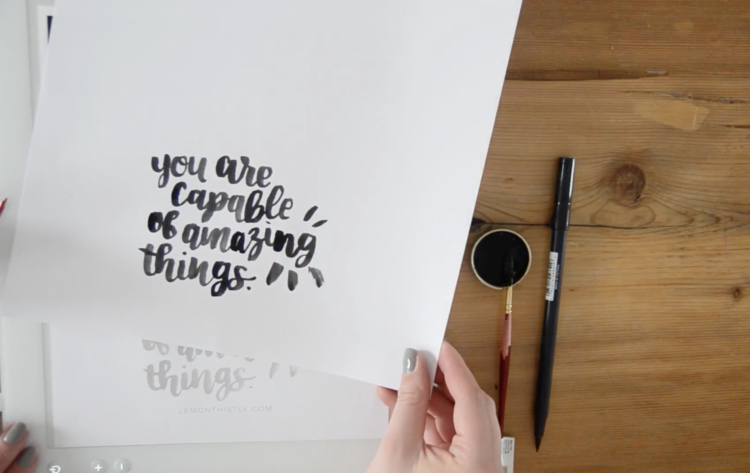 you are
capable
of amazing
things.
things.
LEMONTHISTLE.COM